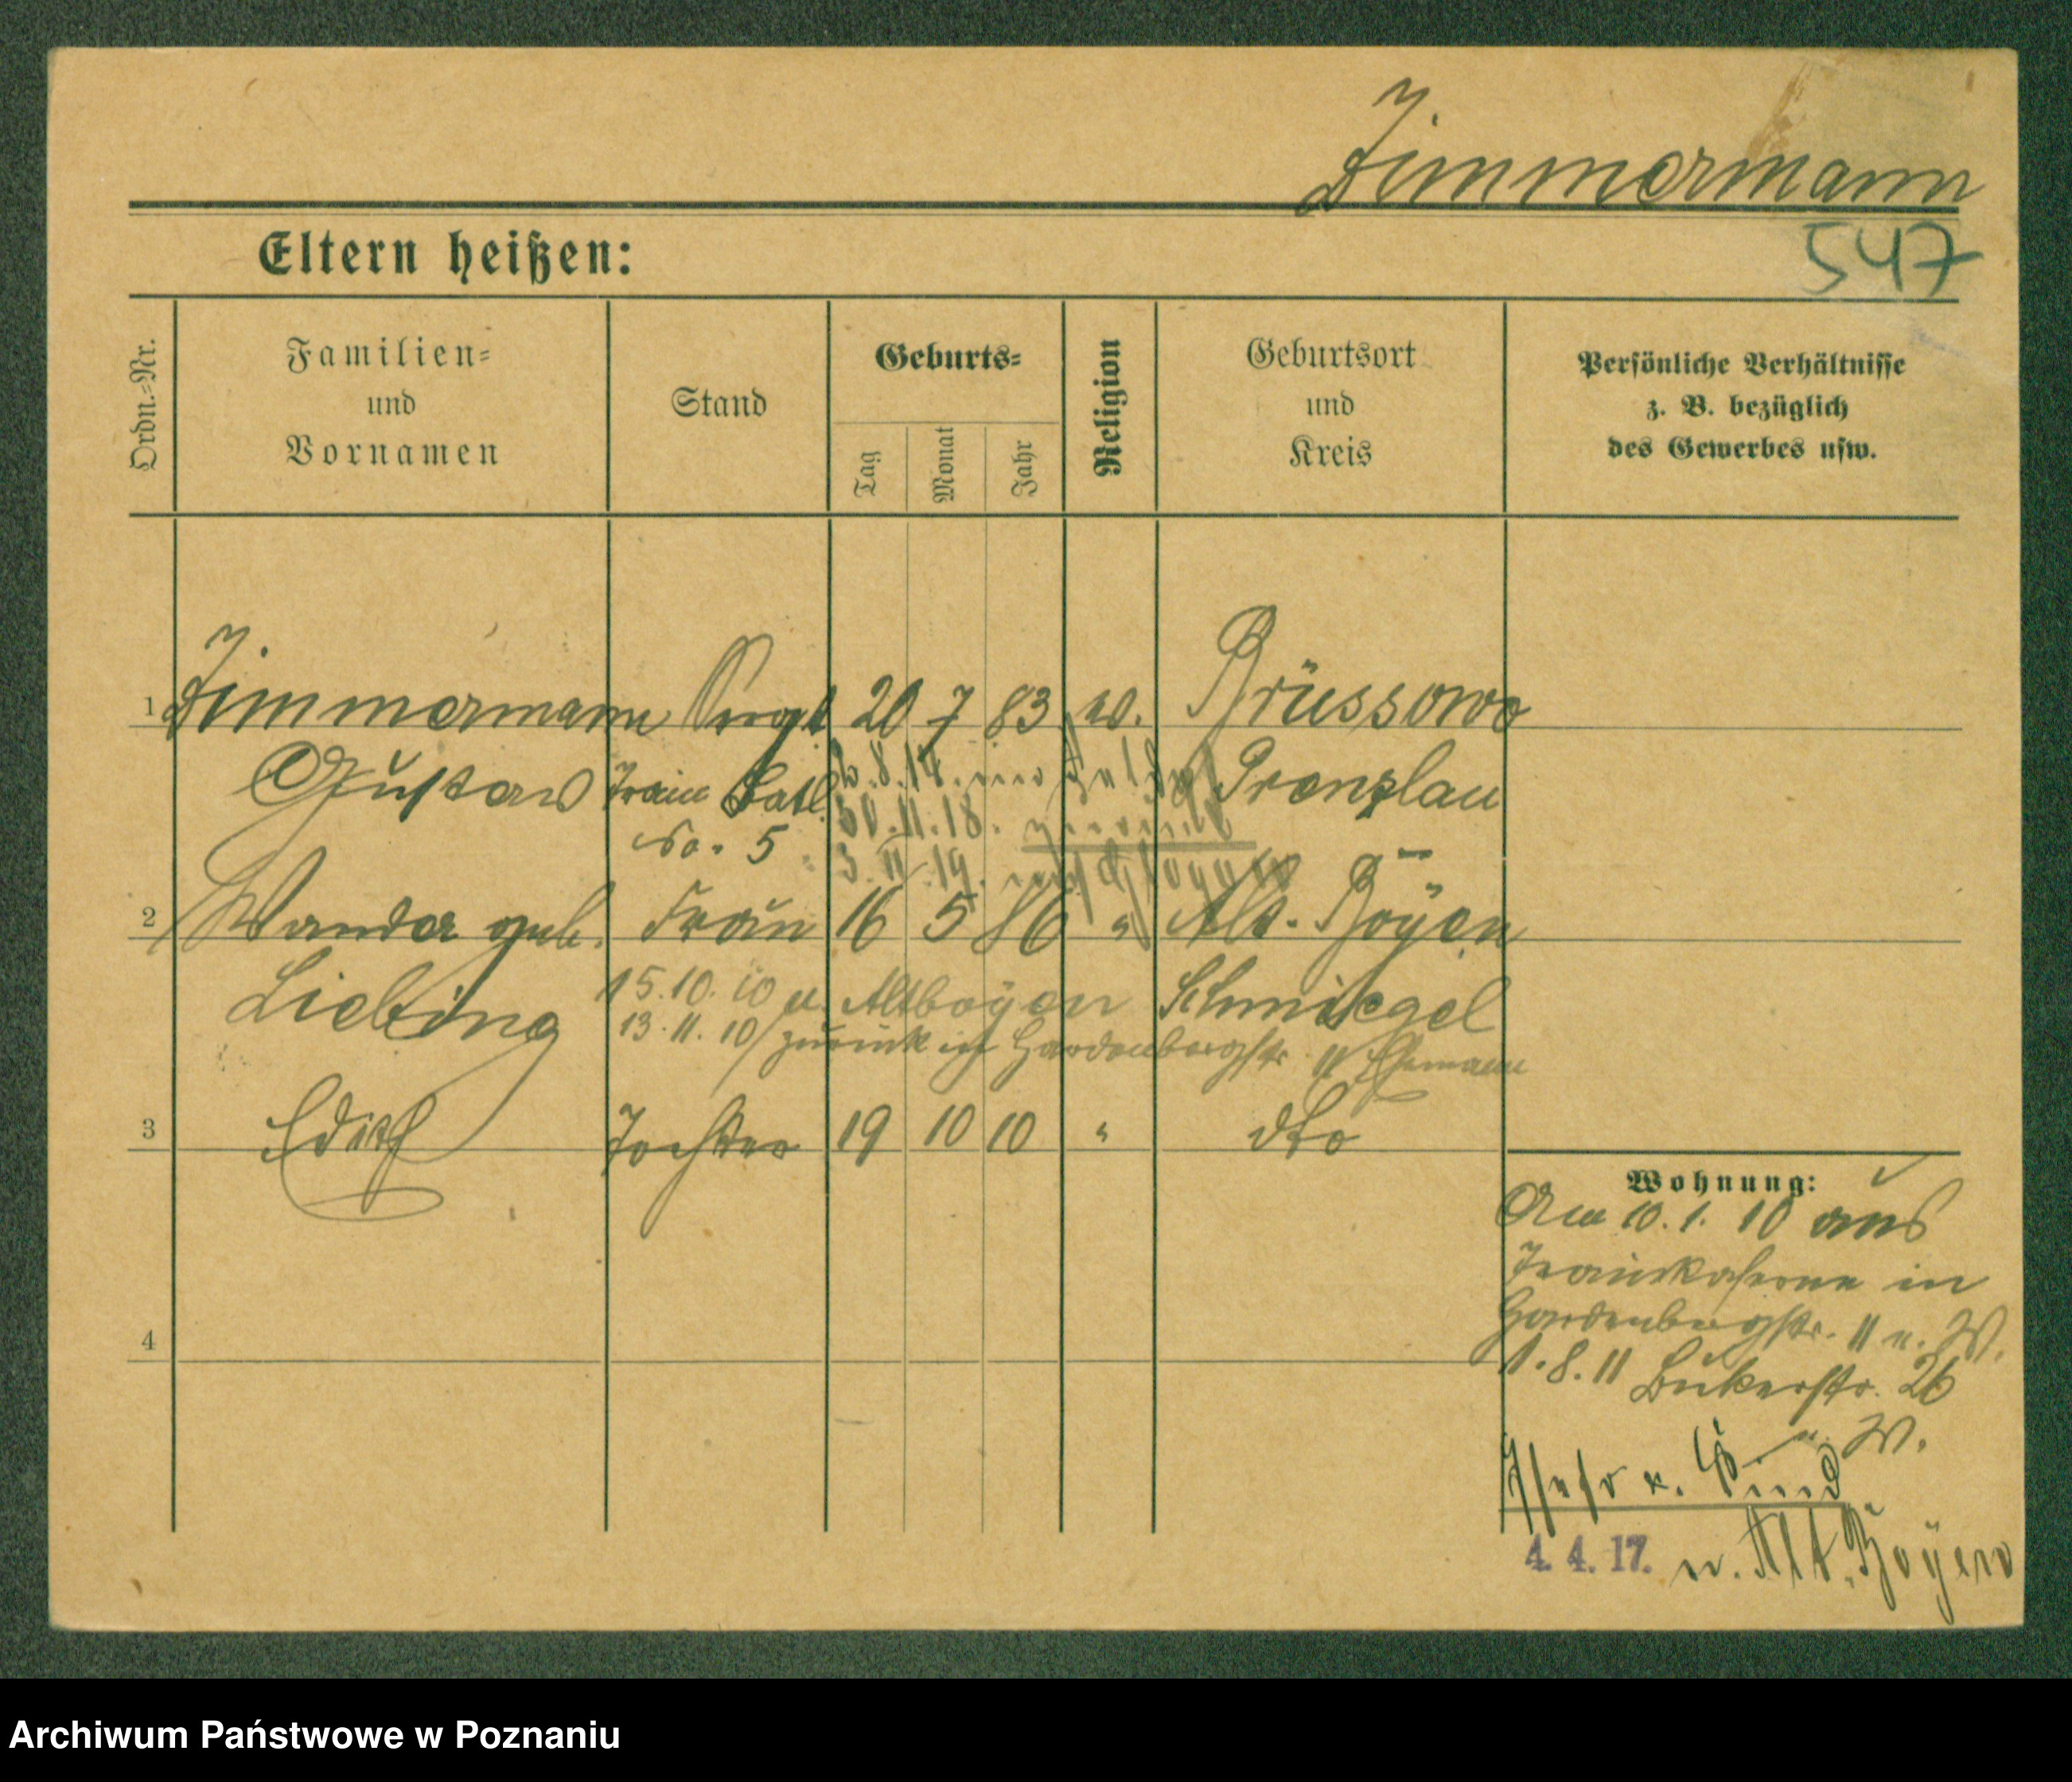 Zimmermann
547
Eltern heißen:
Ordn.-Nr.
Familien-
und
Vornamen
Stand
Geburts-
Tag
Monat
Jahr
Religion
Geburtsort
und
Kreis
Persönliche Verhältnisse
z. B. bezüglich
des Gewerbes usw.
1 Zimmermann 20 7 83 Brüssow
Gustav Train Batl. Prenzlau
No. 5
30.11.18. zurück
3. 11. 19. nach Glogau
2 Wanda geb. Frau 16 5 86 " Alt-Boyen
Liebing Schmiegel
15.10.10 n. Altboyen
13.11.10 zurück in Hardenbergstr. 11 Ehemann
3 Edith Tochter 19 10 10 " dto
4
Wohnung:
Am 10.1.10 aus
Trainkaserne in
Hardenbergstr. 11 n. W.
1.8.11 Bukerstr. 26
n. W.
u. Kind
4. 4. 17. n. Alt-Boyen
Archiwum Państwowe w Poznaniu